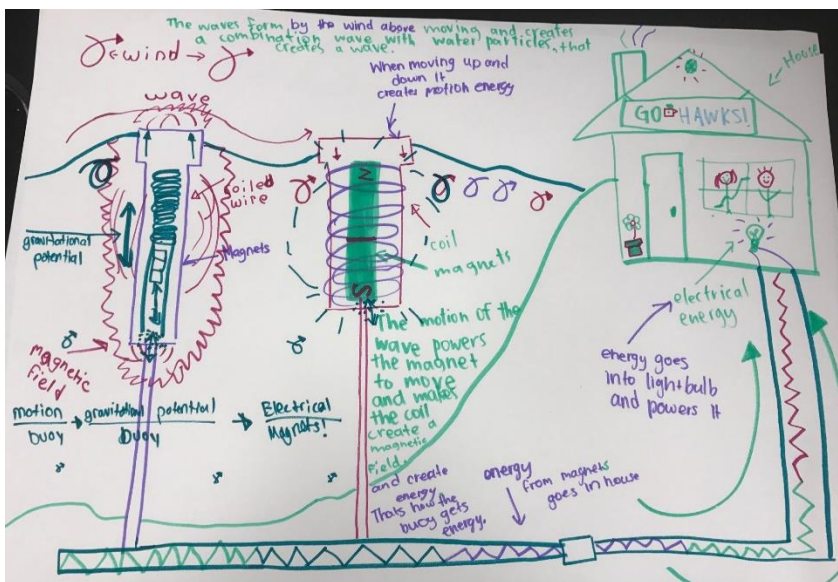 The waves form by the wind above moving and creates
a combination wave with water particles, that
creates a wave.
wind
wave
When moving up and
down it
creates motion energy
House
GO HAWKS!
coiled
wire
gravitational
potential
Magnets
magnetic
field
N
S
coil
magnets
The motion of the
wave powers
the magnet
to move
and makes
the coil
create a
magnetic
field.
and create
energy
Thats how the
buoy gets
energy.
electrical
energy
energy goes
into lightbulb
and powers it
motion
buoy
gravitational potential
buoy
Electrical
Magnets!
energy
from magnets
goes in house